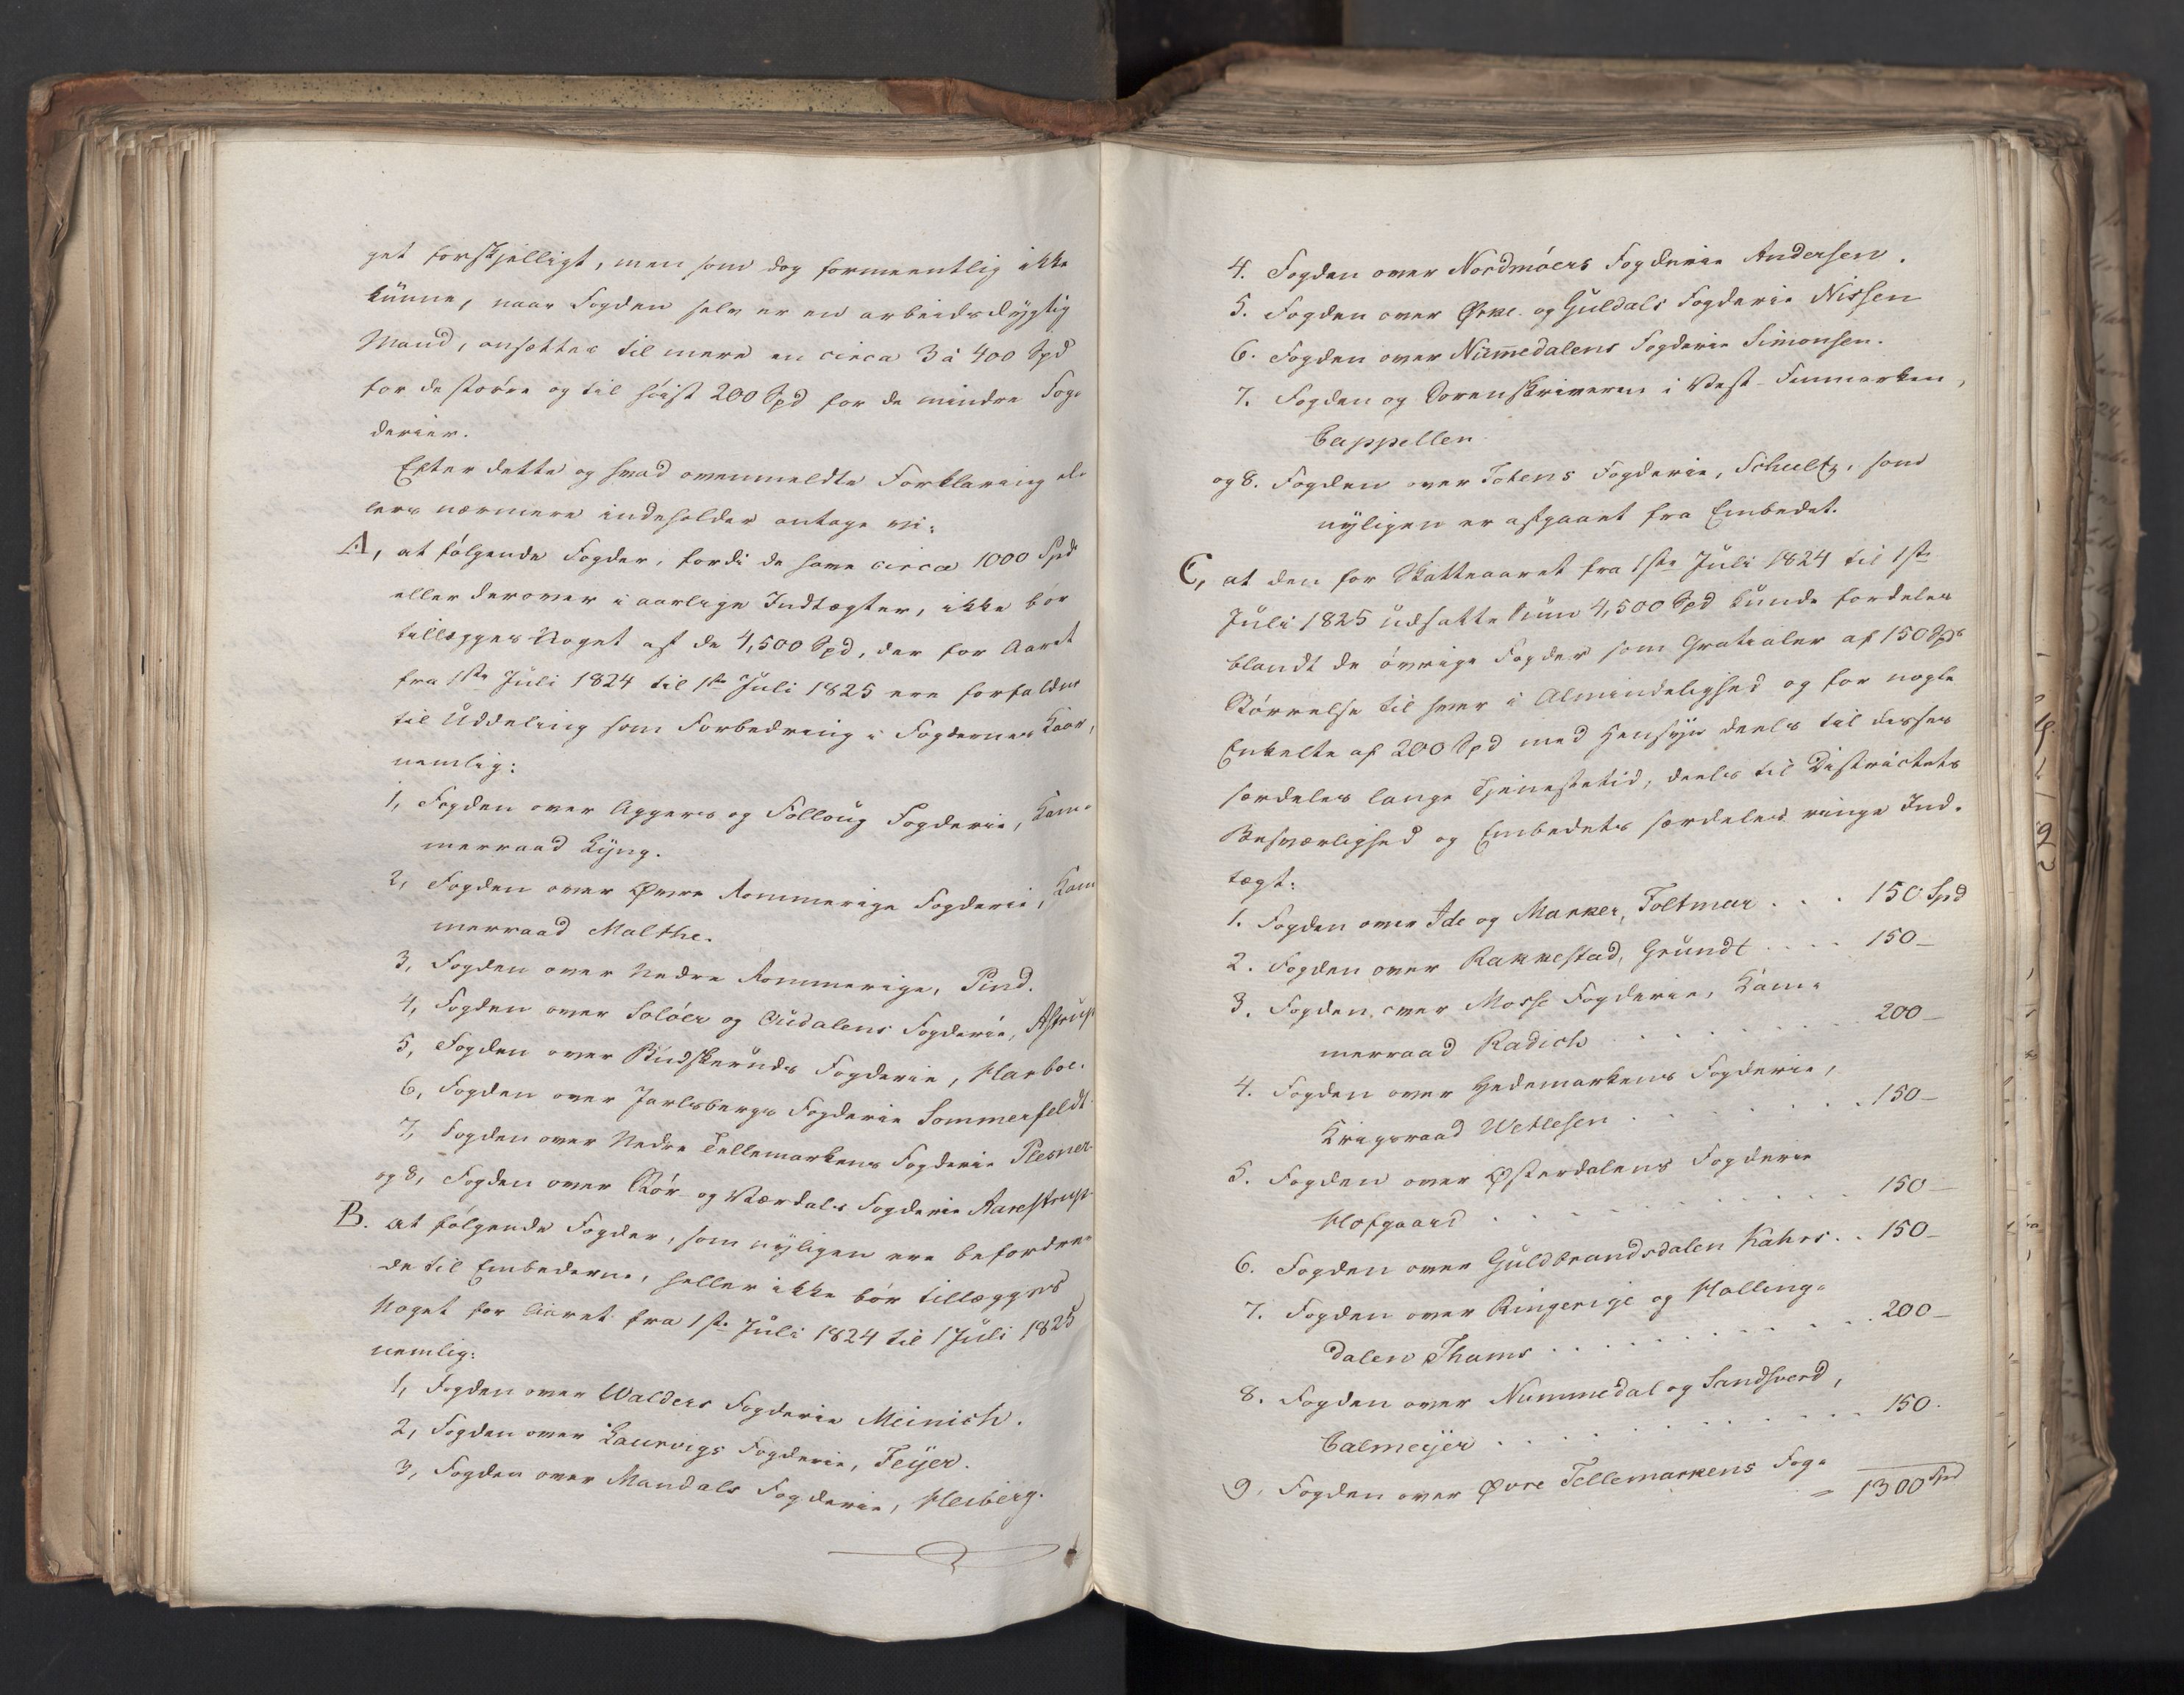 get forskjelligt, men som dog formeentlig ikke
kunne, naar Fogden selv er en arbeidsdygtig
Mand, ansættes til mere en circa 3 à 400 Spd
for de større og til høist 200 Spd for de mindre Fog-
derier.
Efter dette og hvad ovenmeldte Forklaring el-
lers nærmere indeholder antage vi:
A, at følgende Fogder, fordi de have circa 1000 Spd
eller derover i aarlige Indtægter, ikke bør
tillægges Noget af de 4,500 Spd, der for Aaret
fra 1ste Juli 1824 til 1ste Juli 1825 ere forfaldne
til Uddeling som Forbedring i Fogdernes Kaar,
nemlig:
1, Fogden over Aggers og Folloug Fogderie, Kam-
merraad Lyng.
2, Fogden over Øvre Rommerige Fogderie, Kam
merraad Malthe.
3, Fogden over Nedre Rommerige, Pind.
4, Fogden over Soløer og Oudalens Fogderie, Astrup
5, Fogden over Budskeruds Fogderie, Harboe.
6, Fogden over Jarlsbergs Fogderie Sommerfeldt
7, Fogden over Nedre Tellemarkens Fogderie Plesner.
og 8, Fogden over Stør- og Værdals Fogderie Aarestrup.
B. at følgende Fogder, som nyligen ere befordre-
de til Embederne, heller ikke bør tillægges
Noget for Aaret fra 1ste Juli 1824 til 1 Juli 1825
nemlig:
1, Fogden over Walders Fogderie Meinich.
2, Fogden over Laurvigs Fogderie, Feyer.
3, Fogden over Mandals Fogderie, Heiberg.
4. Fogden over Nordmøers Fogderie Andersen.
5. Fogden over Ørke- og Guldals Fogderie Nissen
6. Fogden over Nummedalens Fogderie Simonsen.
7. Fogden og Sorenskriveren i Vest-Finmarken,
Cappellen
og 8. Fogden over Totens Fogderie, Schultz, som
nyligen er afgaaet fra Embedet.
C, at den for Skatteaaret fra 1ste Juli 1824 til 1ste
Juli 1825 udsatte Sum 4,500 Spd kunde fordeles
blandt de øvrige Fogder som Gratialer af 150 Spds
Størrelse til hver i Almindelighed og for nogle
Enkelte af 200 Spd med Hensyn deels til disses
særdeles lange Tjenestetid, deels til Districtets
Besværlighed og Embedets særdeles ringe Ind-
tægt:
1. Fogden over Ide og Marker, Toltmar . . . 150 Spd
2. Fogden over Rakkestad, Grundt . . . . 150 —
3. Fogden over Mosse Fogderie, Kam-
merraad Radich . . . . . . . . 200 —
4. Fogden over Hedemarkens Fogderie,
Krigsraad Wetlesen . . . . . . . 150 —
5. Fogden over Østerdalens Fogderie
Hofgaard . . . . . . . . . . 150 —
6. Fogden over Guldbrandsdalen Kahrs . . 150 —
7. Fogden over Ringerige og Halling-
dalen Thams . . . . . . . . . 200 —
8. Fogden over Nummedal og Sandsverd,
Calmeyer . . . . . . . . . . 150.
9, Fogden over Øvre Tellemarkens Fog-
= 1300 Spd